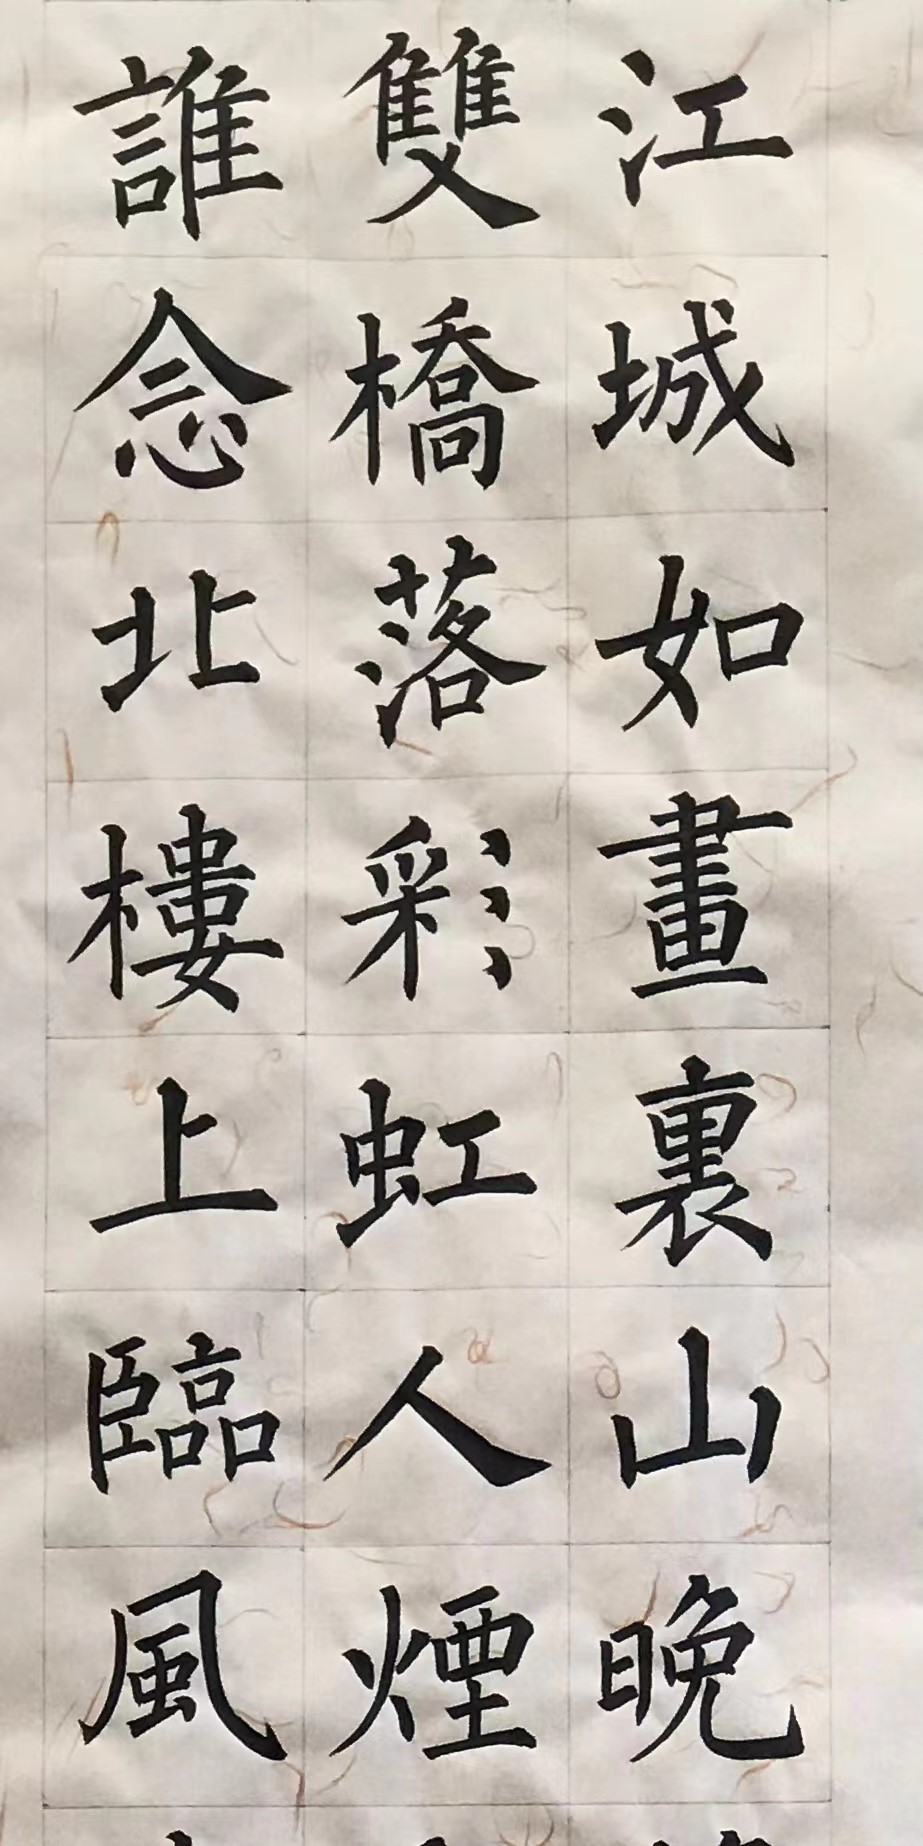 江城如畫裏山晚
雙橋落彩虹人煙
誰念北樓上臨風